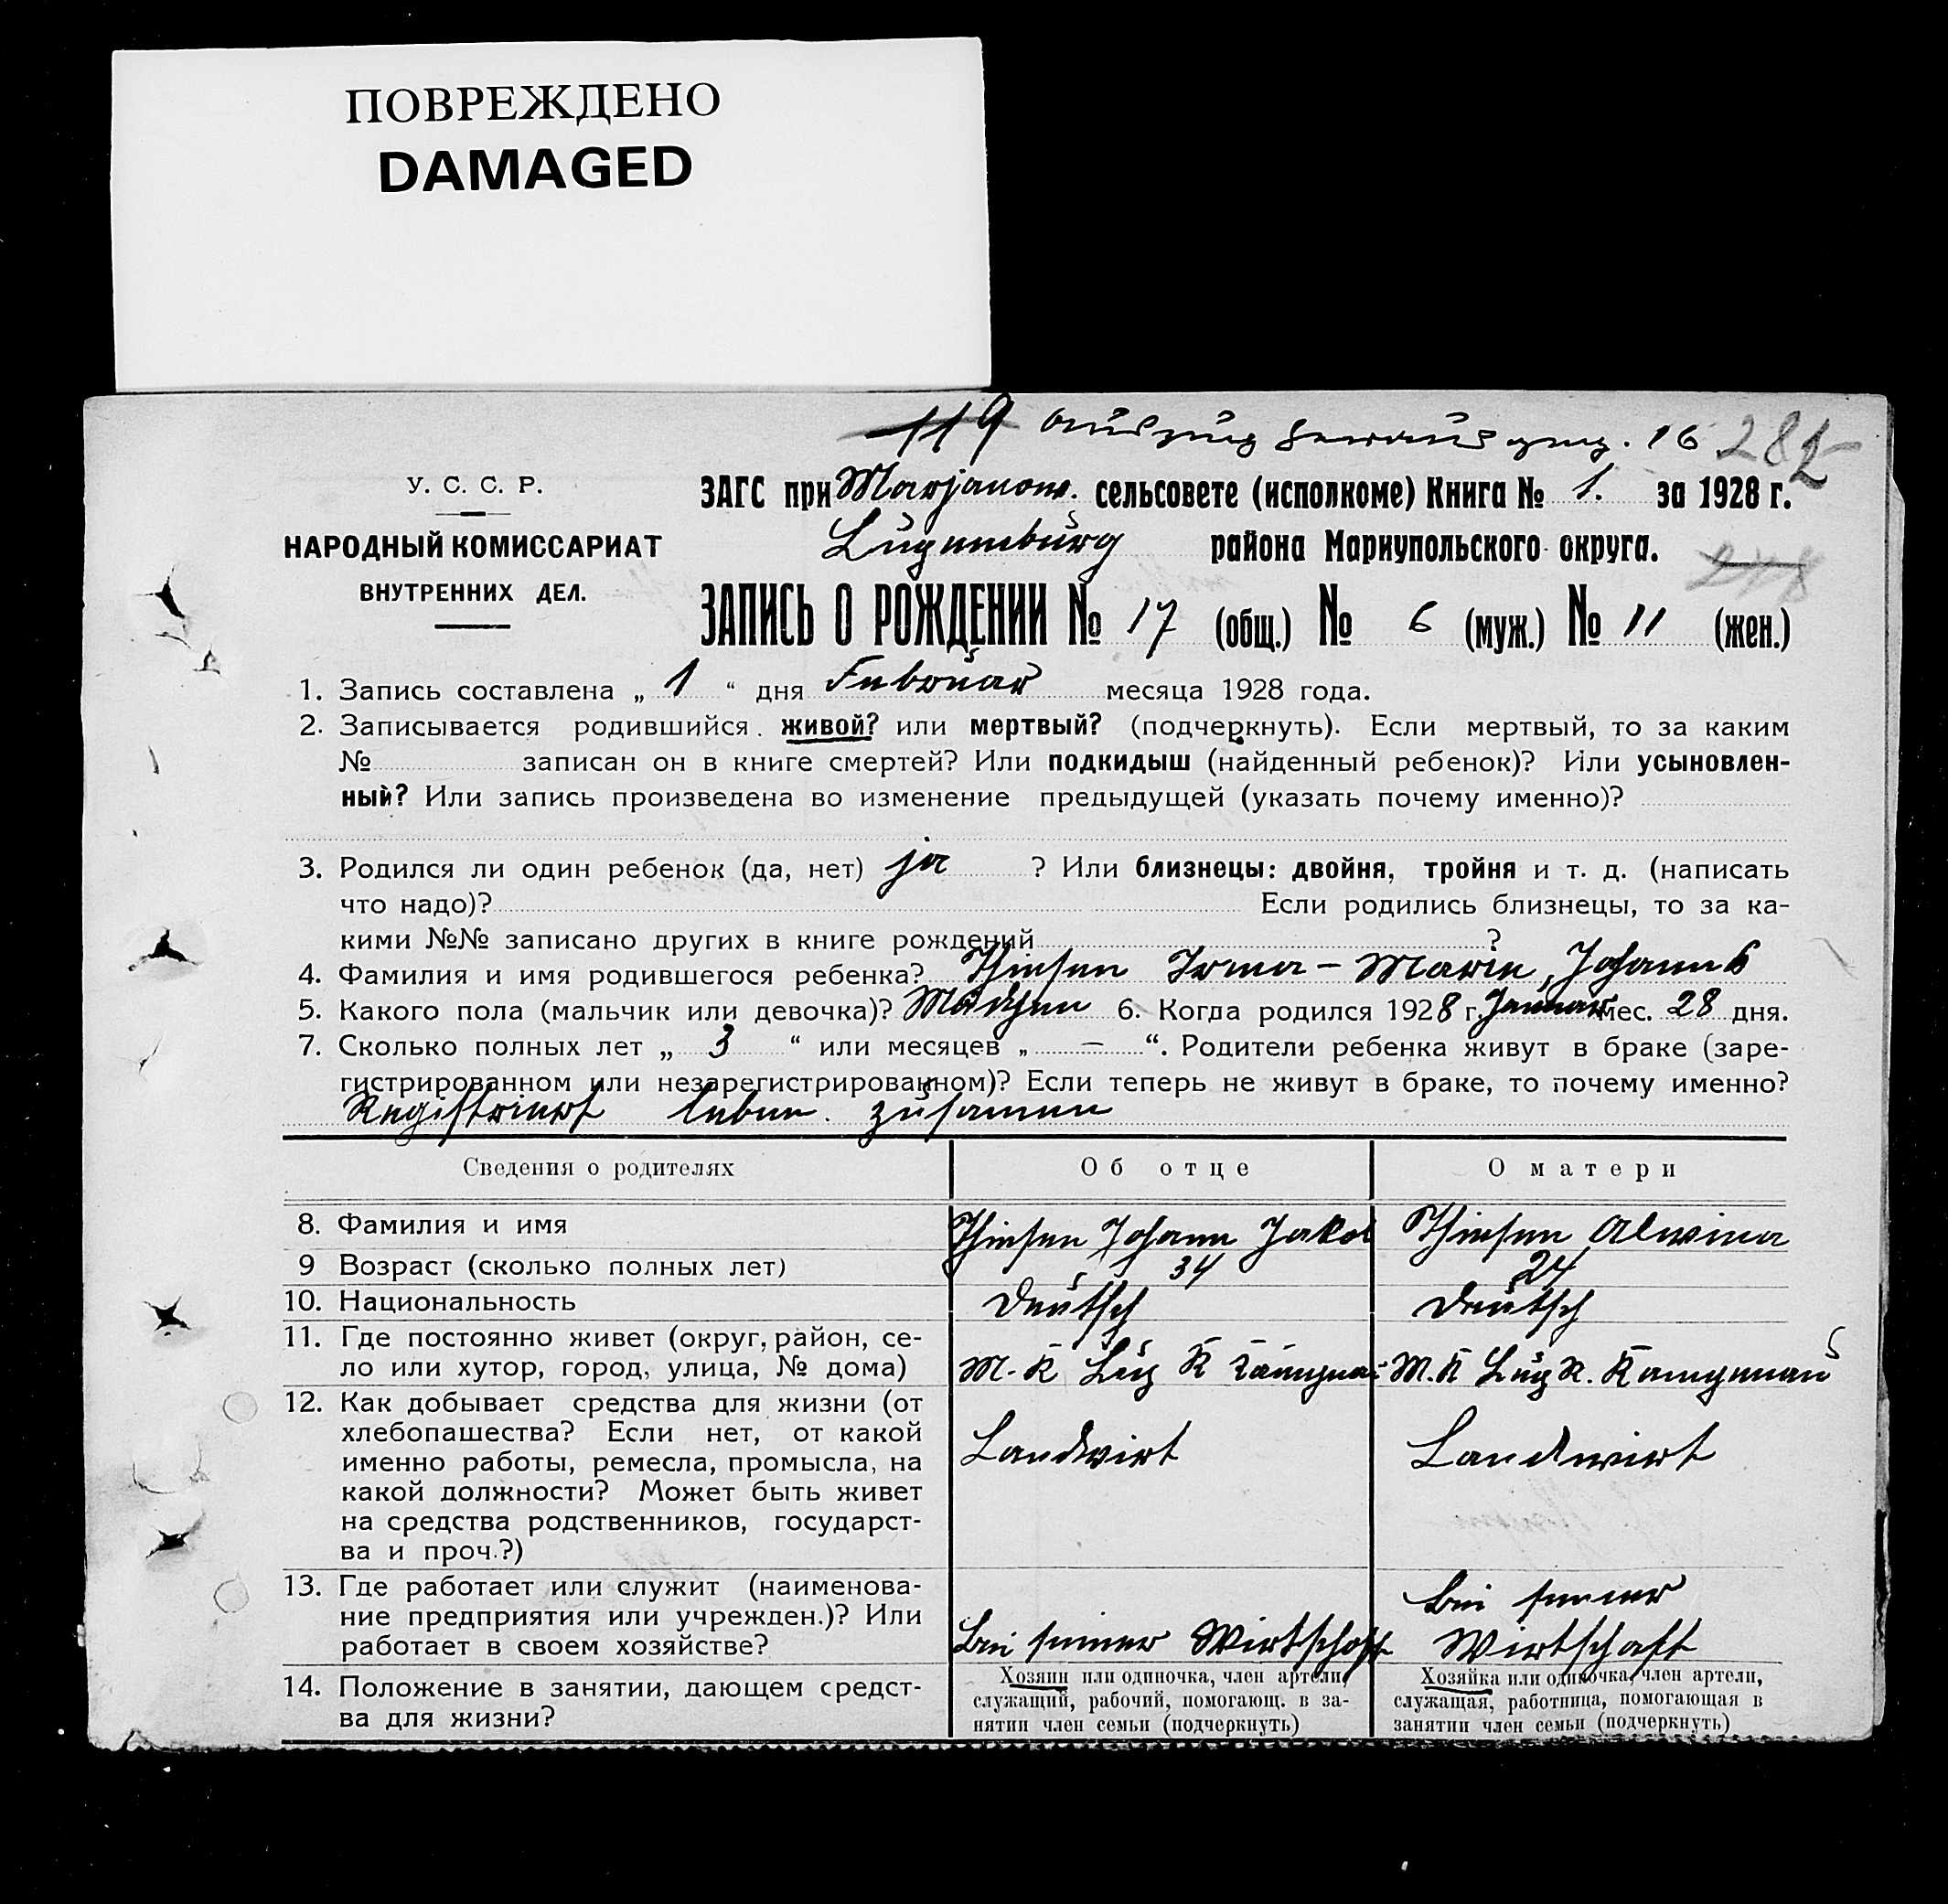 ПОВРЕЖДЕНО
DAMAGED
119 Auszug herausgeg. 16 282
У. С. С. Р.
НАРОДНЫЙ КОМИССАРИАТ
ВНУТРЕННИХ ДЕЛ.
ЗАГС при Marjanow. сельсовете (исполкоме) Книга № 1. за 1928 г.
Luxemburg района Мариупольского округа.
248
ЗАПИСЬ О РОЖДЕНИИ № 17 (общ.) № 6 (муж.) № 11 (жен.)
1. Запись составлена „ 1 “ дня Februar месяца 1928 года.
2. Записывается родившийся живой? или мертвый? (подчеркнуть). Если мертвый, то за каким
№ записан он в книге смертей? Или подкидыш (найденный ребенок)? Или усыновлен-
ный? Или запись произведена во изменение предыдущей (указать почему именно)?
3. Родился ли один ребенок (да, нет) ja ? Или близнецы: двойня, тройня и т. д. (написать
что надо)? Если родились близнецы, то за ка-
кими №№ записано других в книге рождений ?
4. Фамилия и имя родившегося ребенка? Thiesen Irma - Marie, Johann
5. Какого пола (мальчик или девочка)? Mädchen 6. Когда родился 1928 г. Januar мес. 28 дня.
7. Сколько полных лет „ 3 “ или месяцев „ — “. Родители ребенка живут в браке (заре-
гистрированном или незарегистрированном)? Если теперь не живут в браке, то почему именно?
Registriert leben. zusamen
Сведения о родителях Об отце О матери
8. Фамилия и имя Thiesen Johann Jakob Thiesen Alwina
9 Возраст (сколько полных лет) 34 24
10. Национальность Deutsch Deutsch
11. Где постоянно живет (округ, район, се-
ло или хутор, город, улица, № дома) M. K Lux R M. K Lux R.
12. Как добывает средства для жизни (от
хлебопашества? Если нет, от какой
именно работы, ремесла, промысла, на
какой должности? Может быть живет
на средства родственников, государст-
ва и проч.?)
Landwirt Landwirt
13. Где работает или служит (наименова-
ние предприятия или учрежден.)? Или
работает в своем хозяйстве?
Bei seiner Wirtschaft
Bei seiner
Wirtschaft
14. Положение в занятии, дающем средст-
ва для жизни?
Хозяин или одиночка, член артели,
служащий, рабочий, помогающ. в за-
нятии член семьи (подчеркнуть)
Хозяйка или одиночка, член артели,
служащая, работница, помогающая в
занятии член семьи (подчеркнуть)